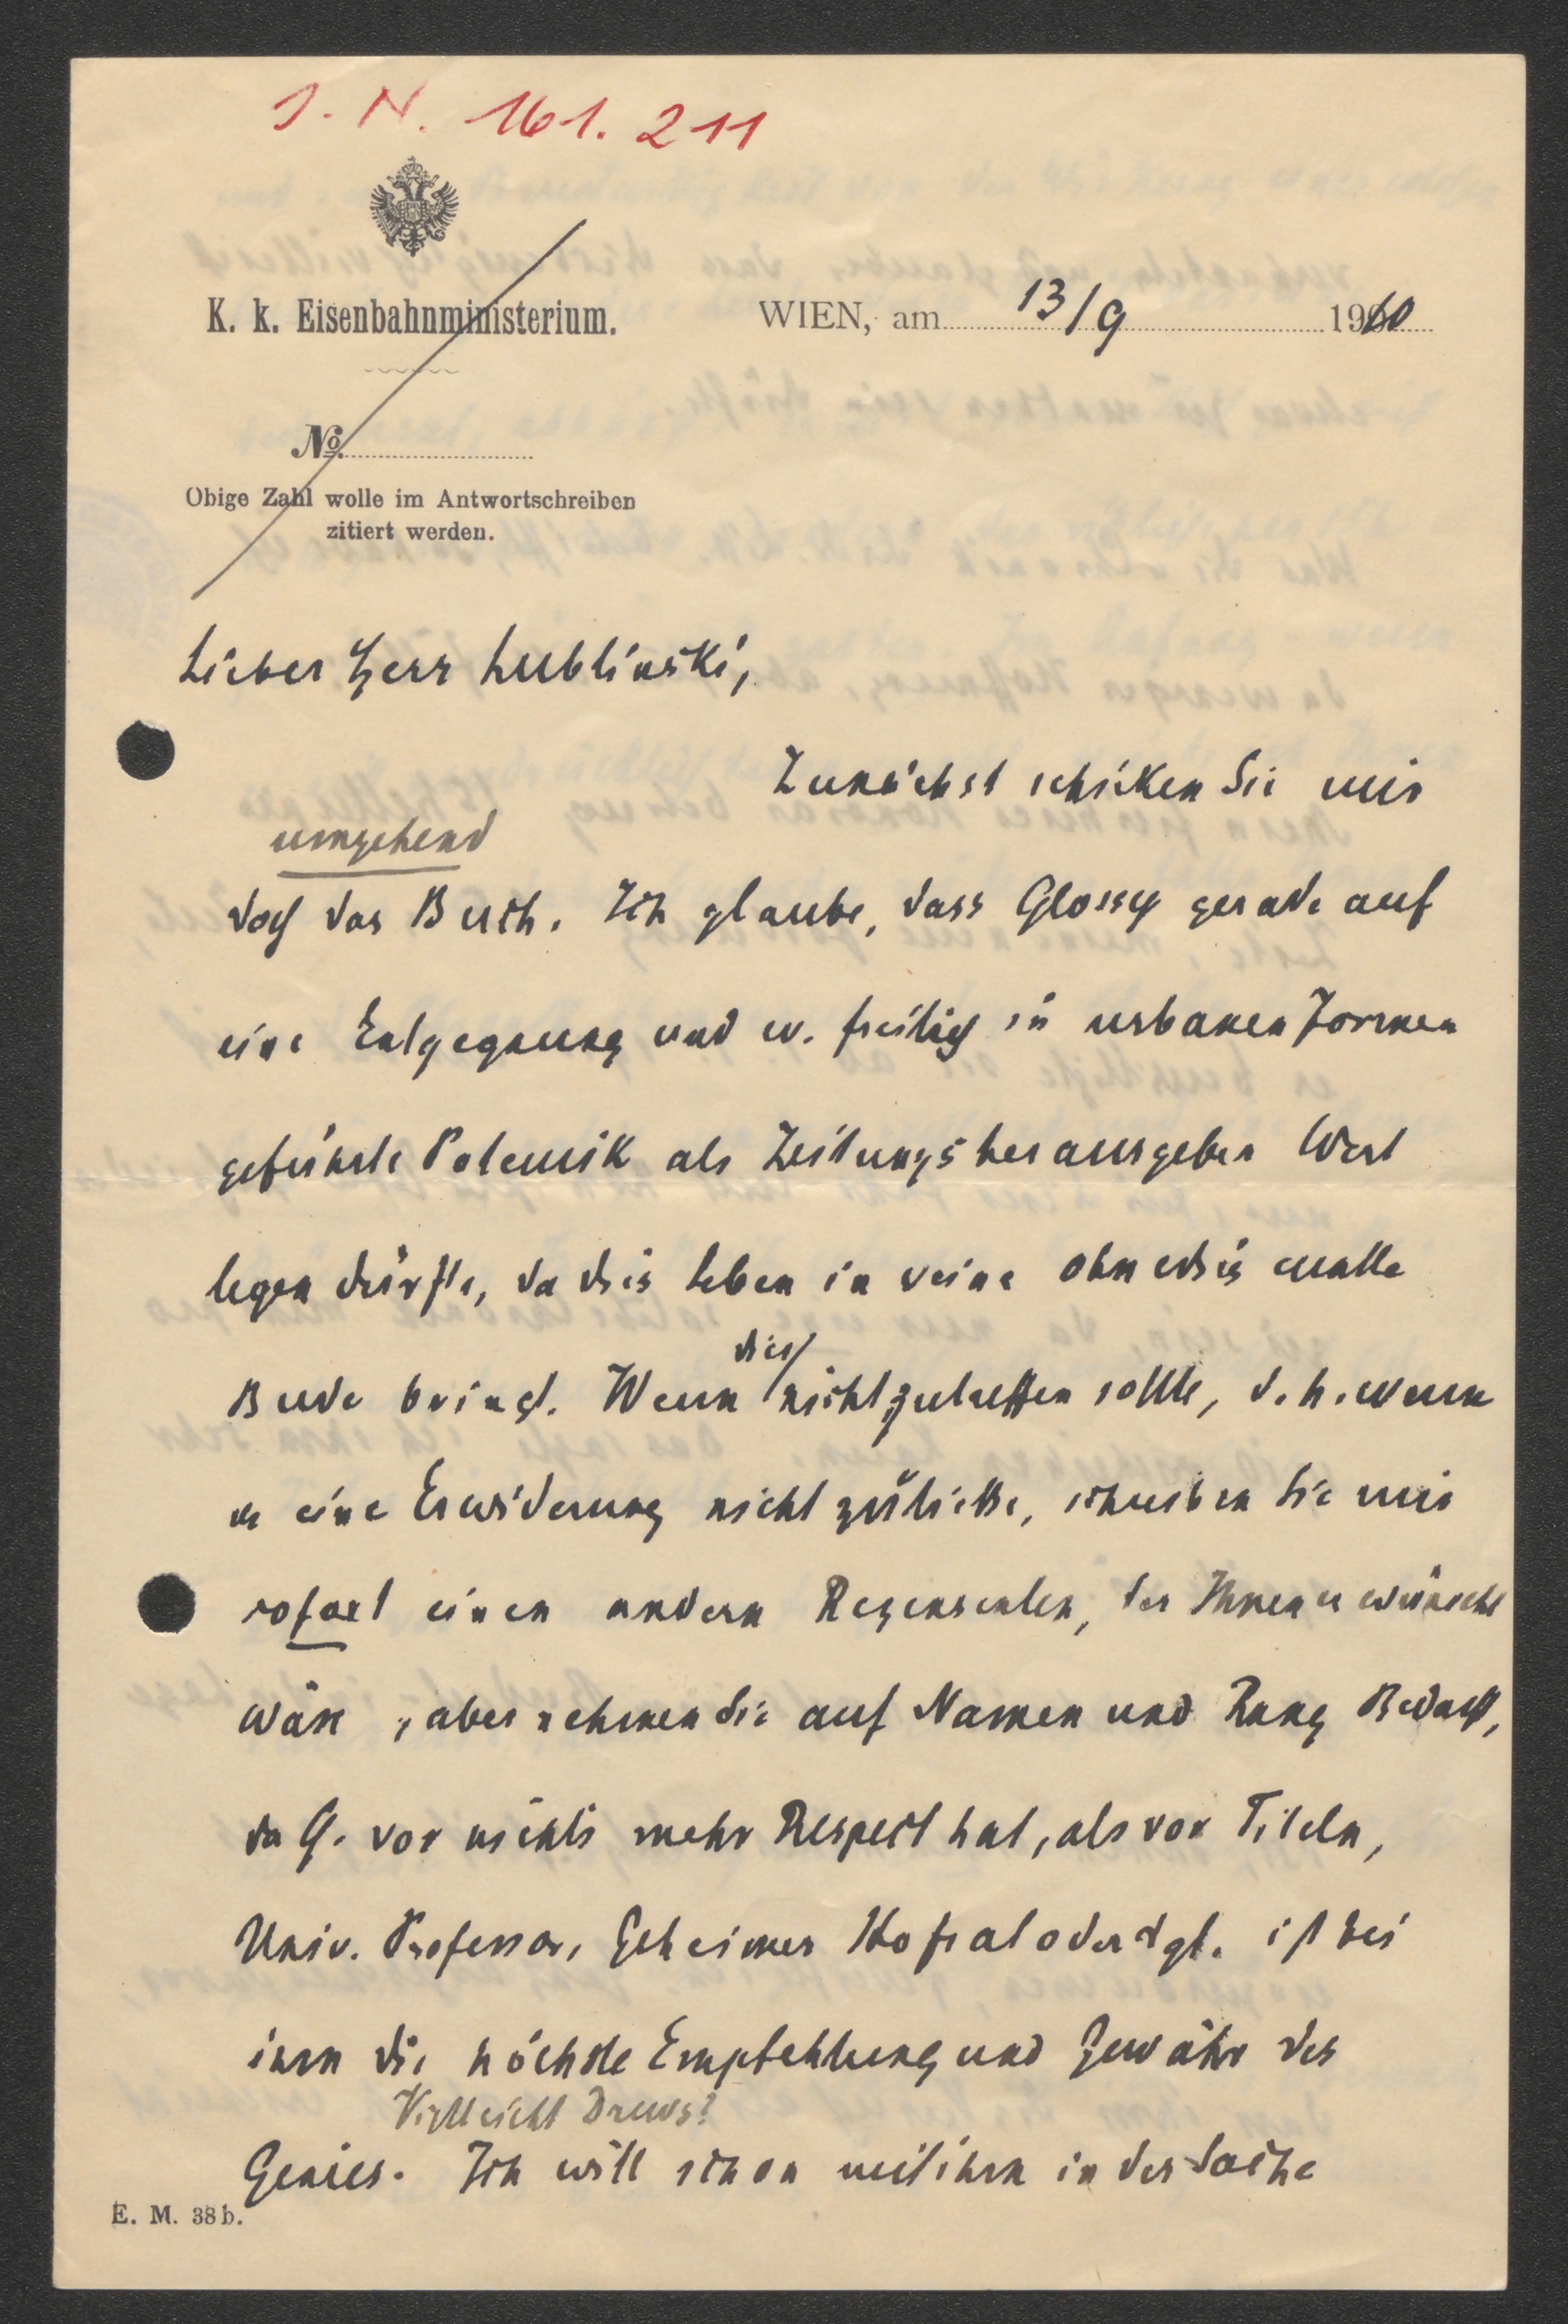 J. N. 161.211
K. k. Eisenbahnministerium.
WIEN, am 13/9 1910
No.
Obige Zahl wolle im Antwortschreiben
zitiert werden.
Lieber Herr Lublinski,
Zunächst schicken Sie mir
umgehend
doch das Buch. Ich glaube, dass Glossy gerade auf
eine Entgegnung und ev. freilich in urbanen Formen
geführte Polemik als Zeitungsherausgeber Wert
legen dürfte, da dies Leben in seine ohnedies matte
Bude bringt. Wenn dies nicht zutreffen sollte, d. h. wenn
er eine Erwiderung nicht zuließe, schreiben Sie mir
sofort einen andern Rezensenten, der Ihnen erwünscht
wäre, aber nehmen Sie auf Namen und Rang Bedacht,
da G. vor nichts mehr Respect hat, als vor Titeln,
Univ. Professor, Geheimer Hofrat oder dgl. ist bei
ihm die höchste Empfehlung und Gewähr des
Vielleicht Drews?
Genies. Ich will schon mit ihm in der Sache
E. M. 38 b.